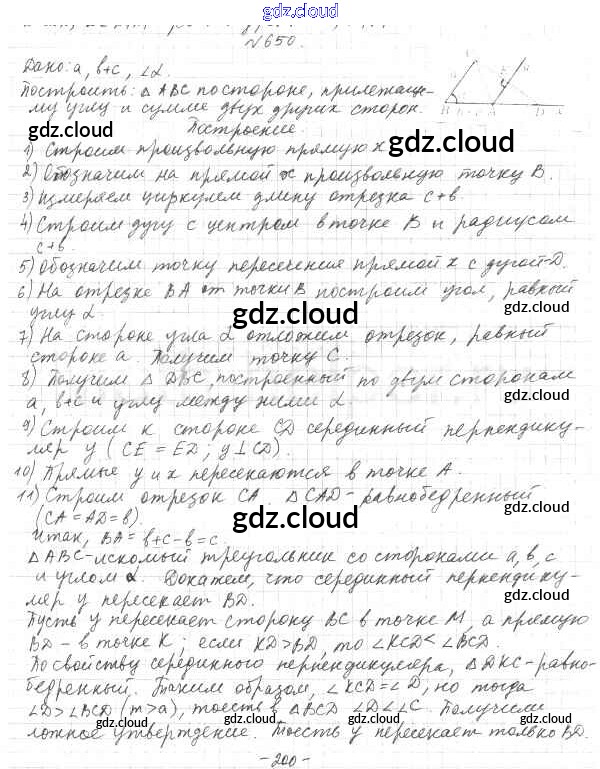 gdz.cloud
№650.
Дано: a, b+c, ∠α.
Построить: △ABC по стороне, прилежаще-
му углу и сумме двух других сторон.
gdz.cloud
gdz.cloud
Построение.
gdz.cloud
1) Строим произвольную прямую x
2) Обозначим на прямой x произвольную точку B.
3) Измеряем циркулем длину отрезка c+b.
4) Строим дугу с центром в точке B и радиусом
c+b.
5) Обозначим точку пересечения прямой x с дугой-D.
6) На отрезке BA от точки B построим угол, равный
углу α.
gdz.cloud
7) На стороне угла α отложим отрезок, равный
стороне a. Получим точку C.
8) Получим △DBC, построенный по двум сторонам
a, b+c и углу между ними α.
gdz.cloud
9) Строим к стороне CD серединный перпендику-
ляр y (CE = ED; y⊥CD).
gdz.cloud
gdz.cloud
10) Прямые y и x пересекаются в точке A.
11) Строим отрезок CA. △CAD-равнобедренный
(CA = AD = b).
gdz.cloud
Итак, BA = b+c-b=c.
△ABC-искомый треугольник со сторонами a, b, c
и углом α. Докажем, что серединный перпендику-
ляр y пересекает BD.
Пусть y пересекает сторону BC в точке M, а прямую
BD - в точке K; если KD>BD, то ∠KCD<∠BCD.
По свойству серединного перпендикуляра, △DKC-равно-
бедренный. Таким образом, ∠KCD=∠D; но тогда
gdz.cloud
∠D>∠BCD (m>a), то есть в △BCD ∠D<∠C. Получили
gdz.cloud
gdz.cloud
ложное утверждение. То есть y пересекает только BD.
-200-